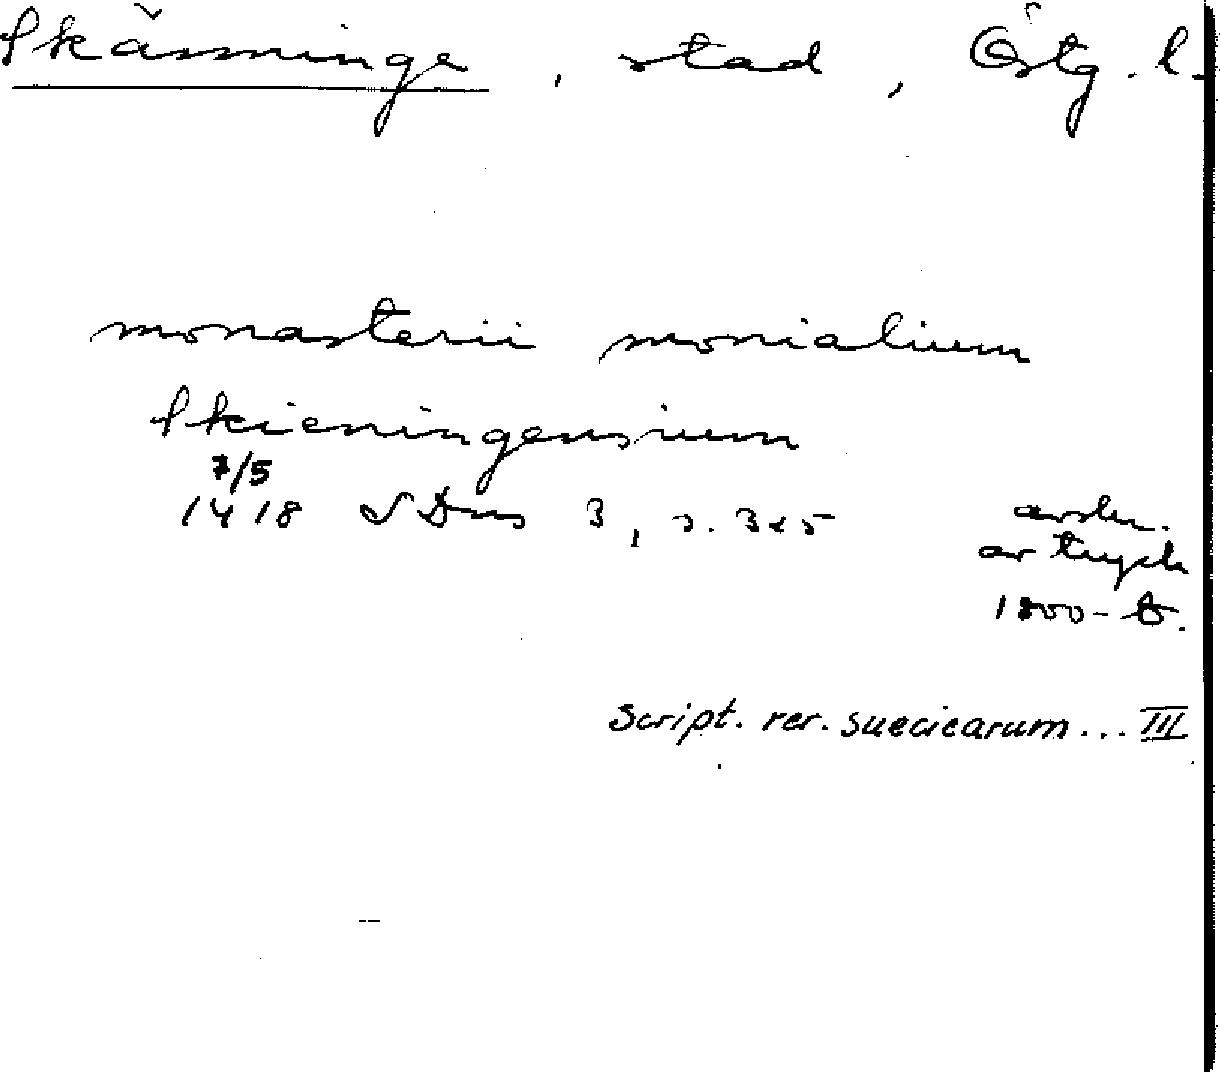 Skänninge, stad, Östg. l.
monasterii monialium
Skieningensium
7/5
1418 SDns 3, s. 325
avskr.
av tryck
1800-t.
Script. rer. suecicarum... III